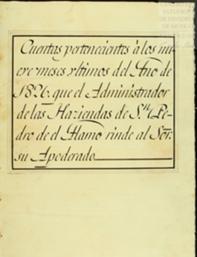 Cuentas pertenecientes à los nu
eve meses ultimos del Año de
1826, que el Administrador
de las Haziendas de Sn. Pe-
dro de el Alamo rinde al Sōr.
su Apoderado